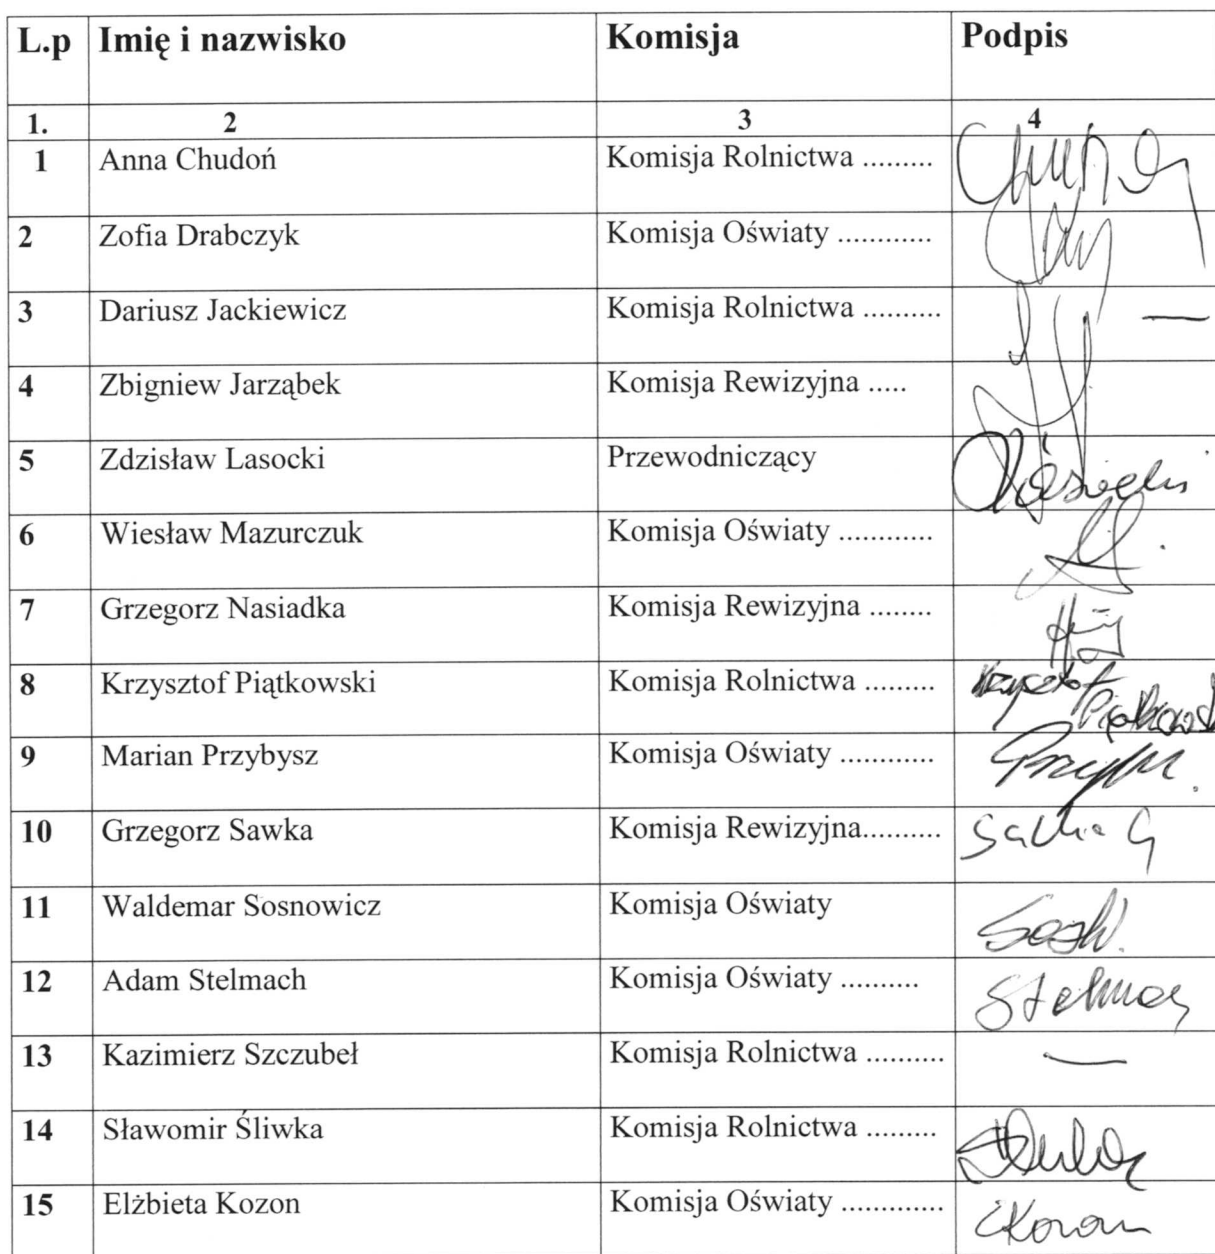 L.p Imię i nazwisko Komisja Podpis
1. 2 3 4
1 Anna Chudoń Komisja Rolnictwa .........
2 Zofia Drabczyk Komisja Oświaty ............
3 Dariusz Jackiewicz Komisja Rolnictwa .......... —
4 Zbigniew Jarząbek Komisja Rewizyjna .....
5 Zdzisław Lasocki Przewodniczący
6 Wiesław Mazurczuk Komisja Oświaty ............
7 Grzegorz Nasiadka Komisja Rewizyjna ........
8 Krzysztof Piątkowski Komisja Rolnictwa ......... Krzysztof Piątkowski
9 Marian Przybysz Komisja Oświaty ............
10 Grzegorz Sawka Komisja Rewizyjna.......... Sawka G
11 Waldemar Sosnowicz Komisja Oświaty
12 Adam Stelmach Komisja Oświaty .......... Stelmach
13 Kazimierz Szczubeł Komisja Rolnictwa .......... —
14 Sławomir Śliwka Komisja Rolnictwa .........
15 Elżbieta Kozon Komisja Oświaty ............. EKozon